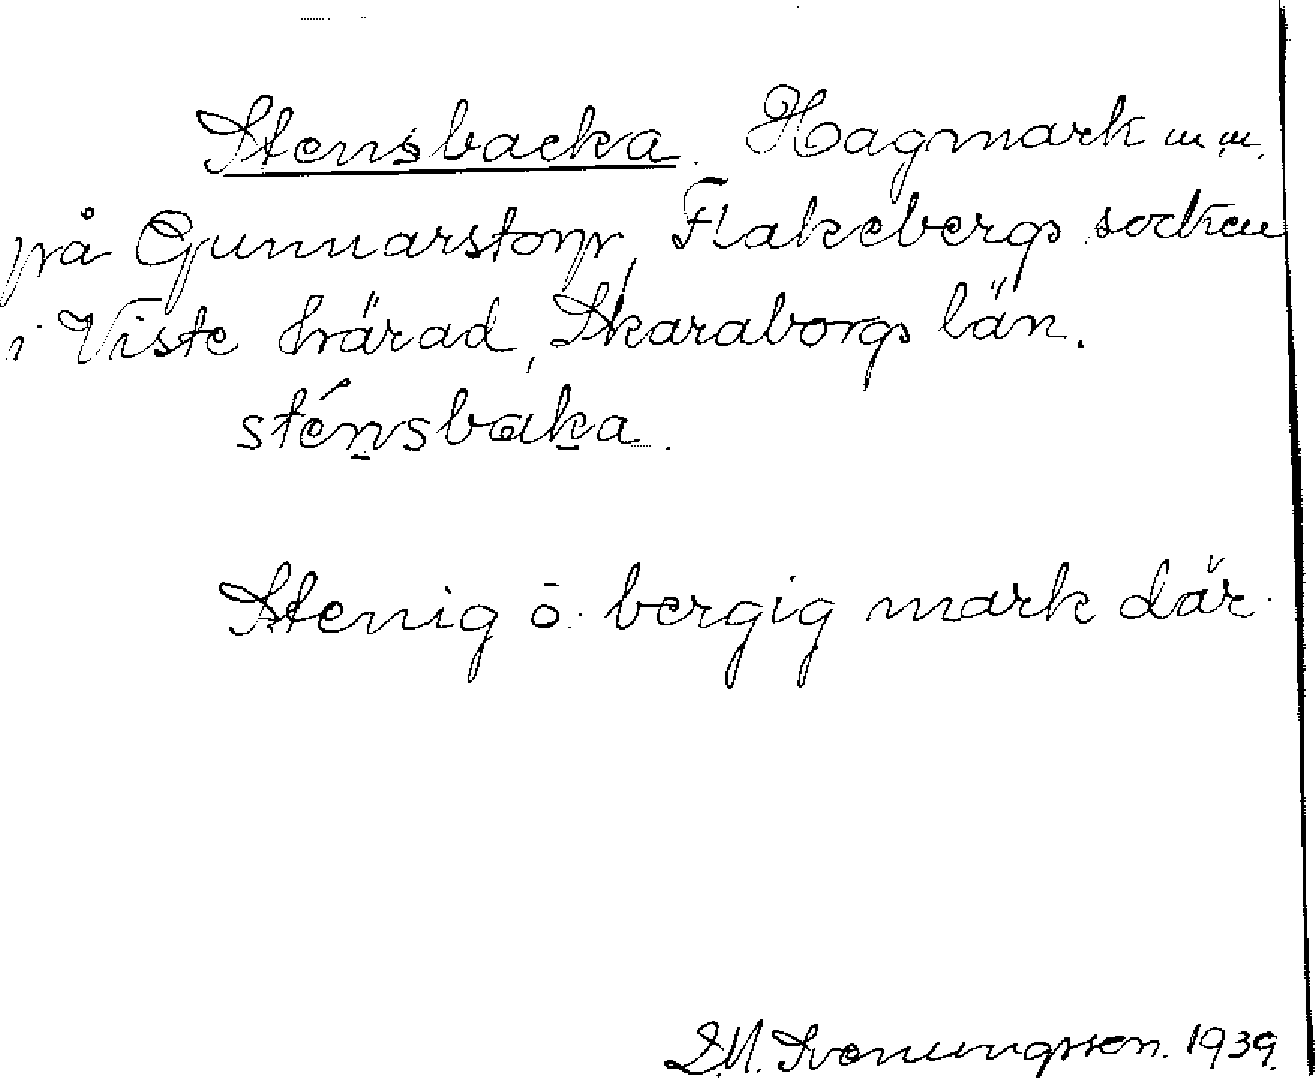 Stensbacka. Hagmark m m.
på Gunnarstorp, Flakebergs socken
i Viste härad, Skaraborgs län.
sténsbaka.
Stenig o. bergig mark där.
1939.